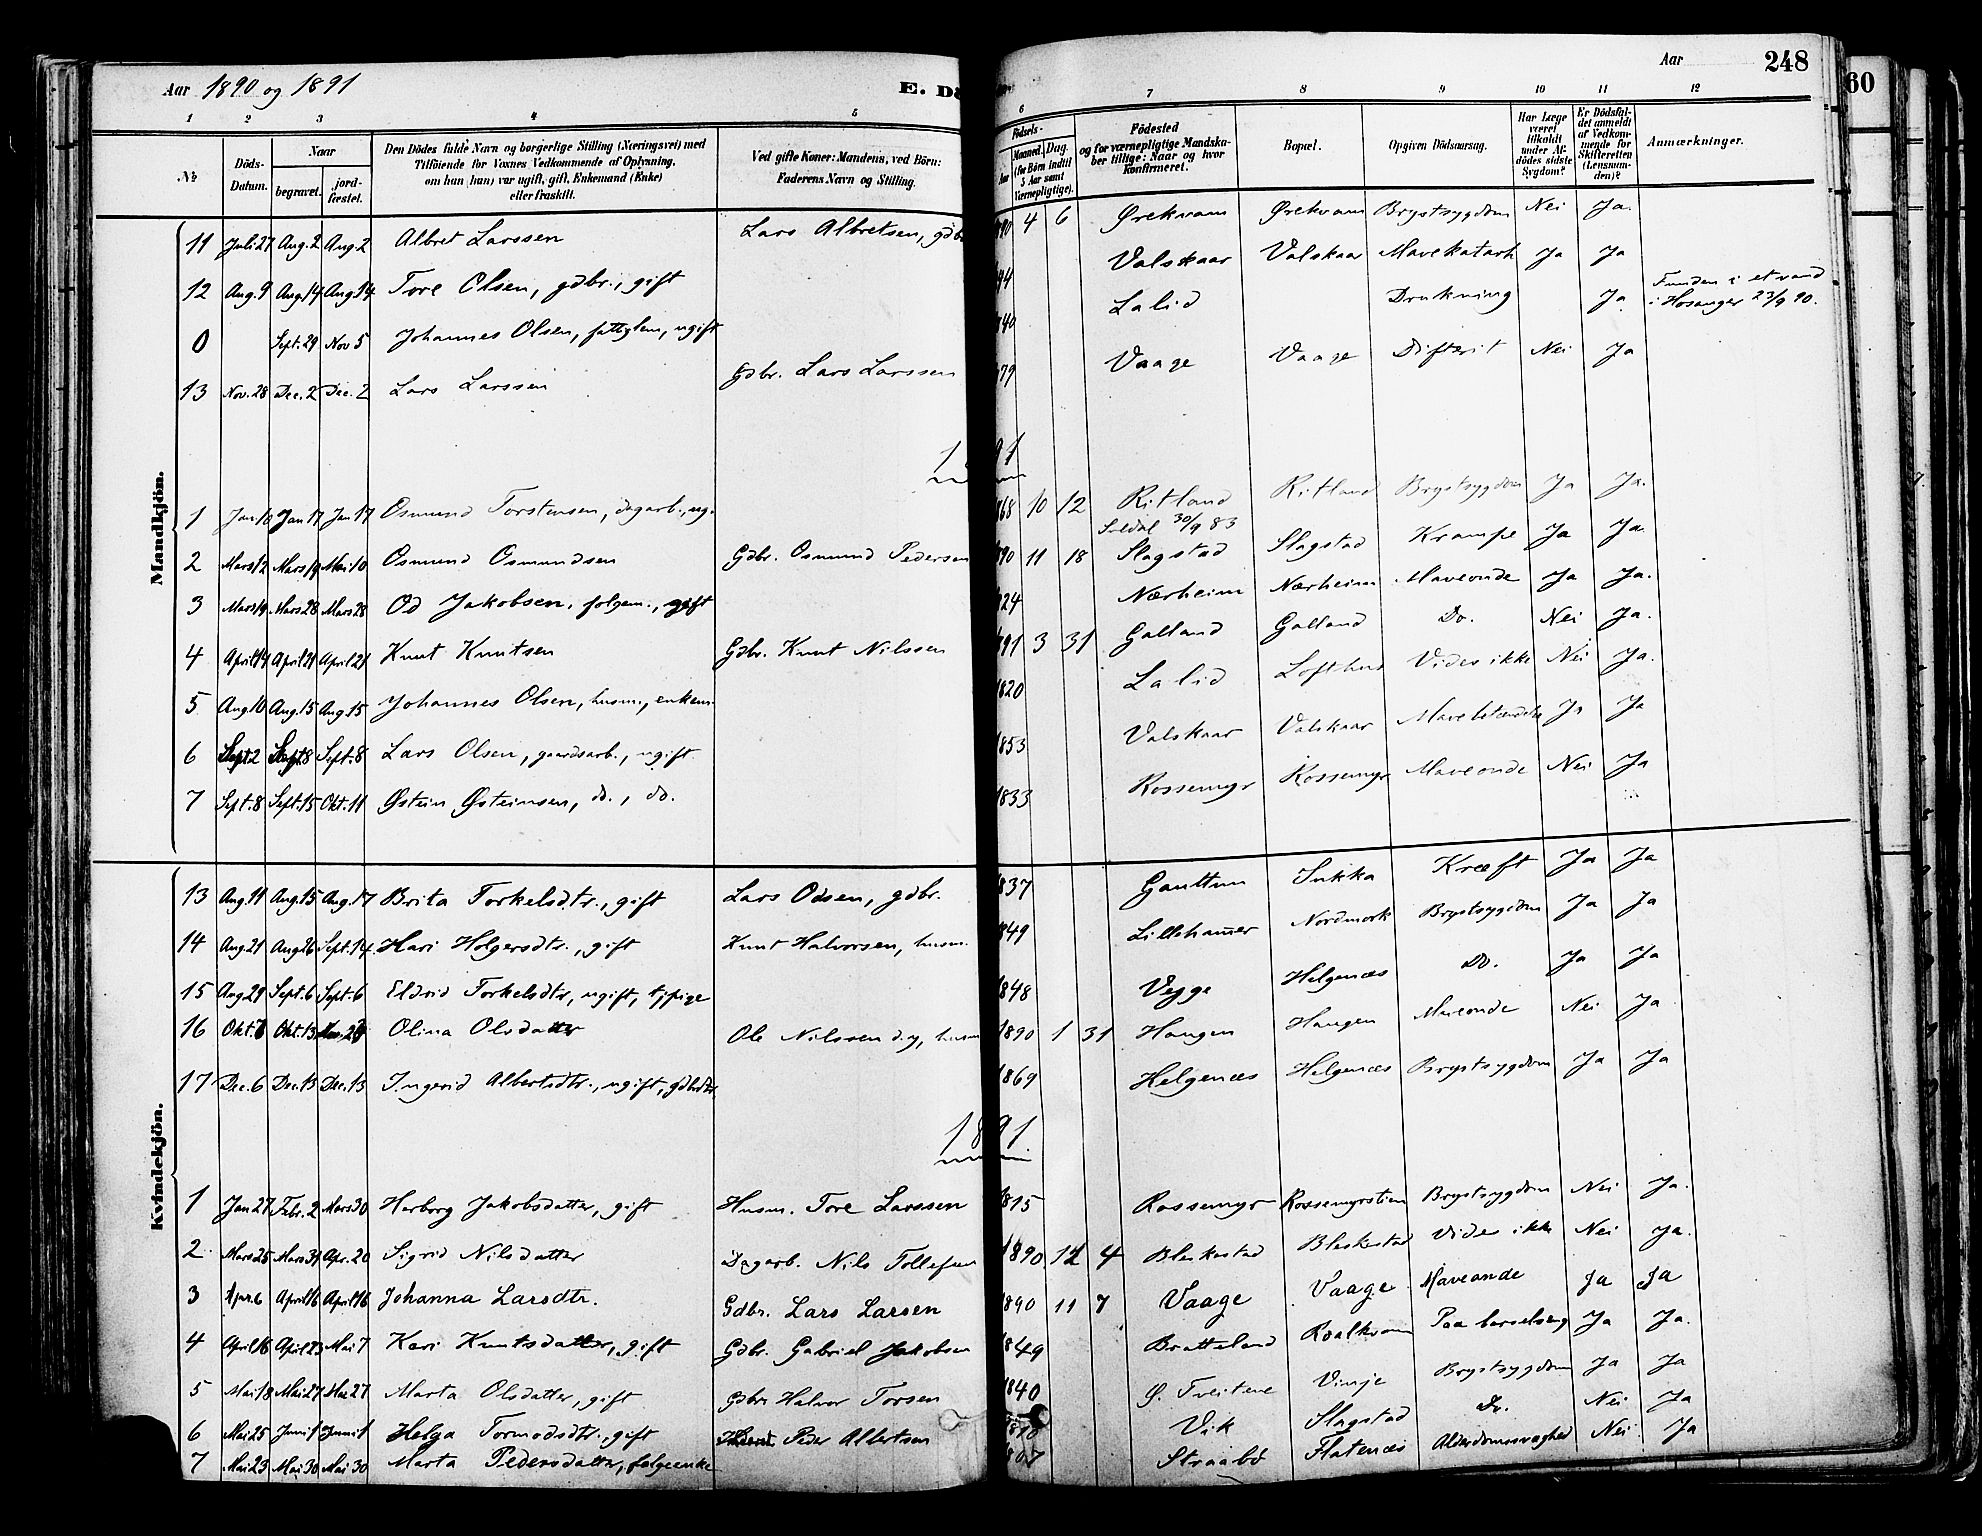 Aar 1890 og 1891 E. Dö
Aar 248
60
1 2 3 4 5 6 7 8 9 10 11 12
№ Döds-Datum. Naar begravet. jord-fæstet. Den Dödes fulde Navn og borgerlige Stilling (Næringsvei) med Tilföiende for Voxnes Vedkommende af Oplysning, om han (hun) var ugift, gift, Enkemand (Enke) eller fraskilt. Ved gifte Koner: Mandens, ved Börn: Faderens Navn og Stilling. Födsels- Aar Maaned. Dag. (for Börn indtil 5 Aar samt Værnepligtige). Födested og for værnepligtige Mandska-ber tillige: Naar og hvor Konfirmeret. Bopæl. Opgiven Dödsaarsag. Har Læge været tilkaldt under Af-dödes sidste Sygdom? Er Dödsfal-det anmeldt af Vedkom-mende for Skifteretten (Lensman-den)? Anmærkninger.
Mandkjön.
11 Juli 27 Aug. 2 Aug. 2 Albret Larssen Lars Albretsen, gdbr 90 4 6 Ørekvam Ørekvam Brystsygdom Nei Ja.
12 Aug. 9 Aug. 14 Aug. 14 Tore Olsen, gdbr., gift 44 Valskaar Valskaar Mavekatarh Ja Ja
0 Sept. 29 Nov 5 Johannes Olsen, fattiglem, ugift 40 Lalid Drukning Ja Funden i et vand i Hosanger 23/9 90.
13 Nov. 28 Dec. 2 Dec. 2 Lars Larssen Gdbr. Lars Larssen 79 Vaage Vaage Difterit Nei Ja
1891
1 Jan. 10 Jan 17 Jan 17 Osmund Torstensen, dagarb., ug. 68 10 12 Ritland Suldal 30/9 83 Ritland Brystsygdom Ja Ja.
2 Mars 12 Mars 19 Mai 10 Osmund Osmundsen Gdbr. Osmund Pedersen 90 11 18 Slagstad Slagstad Krampe Ja Ja.
3 Mars 19 Mars 28 Mars 28 Od Jakobsen, folgem., gift 24 Nærheim Nærheim Maveonde Ja Ja.
4 April 14 April 21 April 21 Knut Knutsen Gdbr. Knut Nilssen 91 3 31 Galland Galland Do. Nei Ja.
5 Aug. 10 Aug. 15 Aug. 15 Johannes Olsen, husm., enkem. 1820 Lalid Lofthus Vides ikke Nei Ja.
6 Sept 2 Sept. 8 Sept. 8 Lars Olsen, gaardsarb., ugift. 1853 Valskaar Valskaar Mavebetændelse Ja Ja
7 Sept. 8 Sept. 15 Okt. 11 Østein Østeinsen, do., do. 1833 Rossemyr Rossemyr Maveonde Nei Ja
Kvindekjön.
13 Aug. 11 Aug. 15 Aug. 17 Brita Torkelsdtr., gift Lars Odsen, gdbr. 837 Gauttun Sukka Kræft Ja Ja
14 Aug. 21 Aug. 26 Sept. 14. Kari Holgersdtr., gift Knut Halvorsen, husm. 849 Lillehamer Nordmork Brystsygdom Ja Ja
15 Aug. 29 Sept. 6 Sept. 6 Eldrid Torkelsdtr, ugift, tjpige 1848 Vegge Helgenæs Do. Ja Ja
16 Okt. 7 Okt. 13 Olina Olsdatter Ole Nilssen d.y., husm 1890 1 31 Haugen Haugen Maveonde Nei Ja
17 Dec. 6 Dec. 13 Dec. 13 Ingerid Albertsdtr., ugift, gdbrdtr. 1869 Helgenæs Helgenæs Brystsygdom Ja Ja
1891.
1 Jan 27 Febr. 2 Mars 30 Herborg Jakobsdatter, gift Husm. Tore Larssen 1815 Rossemyr Rossemyrstien Brystsygdom Nei Ja.
2 Mars 25 Mars 31 Apr. 20 Sigrid Nilsdatter Dagarb. Nils Tollefsen 1890 12 4 Bleskestad Bleskestad Vides ikke Nei Ja.
3 Apr. 6 April 16 April 16 Johanna Larsdtr. Gdbr. Lars Larsen 1890 11 7 Vaage Vaage Maveonde Ja Ja
4 April 16 April 23 Mai 7 Kari Knutsdatter, gift Gdbr. Gabriel Jakobsen 1849 Bratteland Roalkvam Paa barselseng Ja Ja.
5 Mai 18 Mai 27 Mai 27 Marta Olsdatter, gift Gdbr. Halvor Torsen 1840 Ø. Tveitene Vinje Brystsygdom Ja Ja
6 Mai 25 Juni 1 Juni 1 Helga Tormodsdtr., gift Peder Albertsen Vik Slagstad Do. Nei Ja
7 Mai 23 Mai 30 Mai 30 Marta Pedersdatter, folgeenke 1807 Straabø Flatenæs Alderdomssvaghed Nei Ja